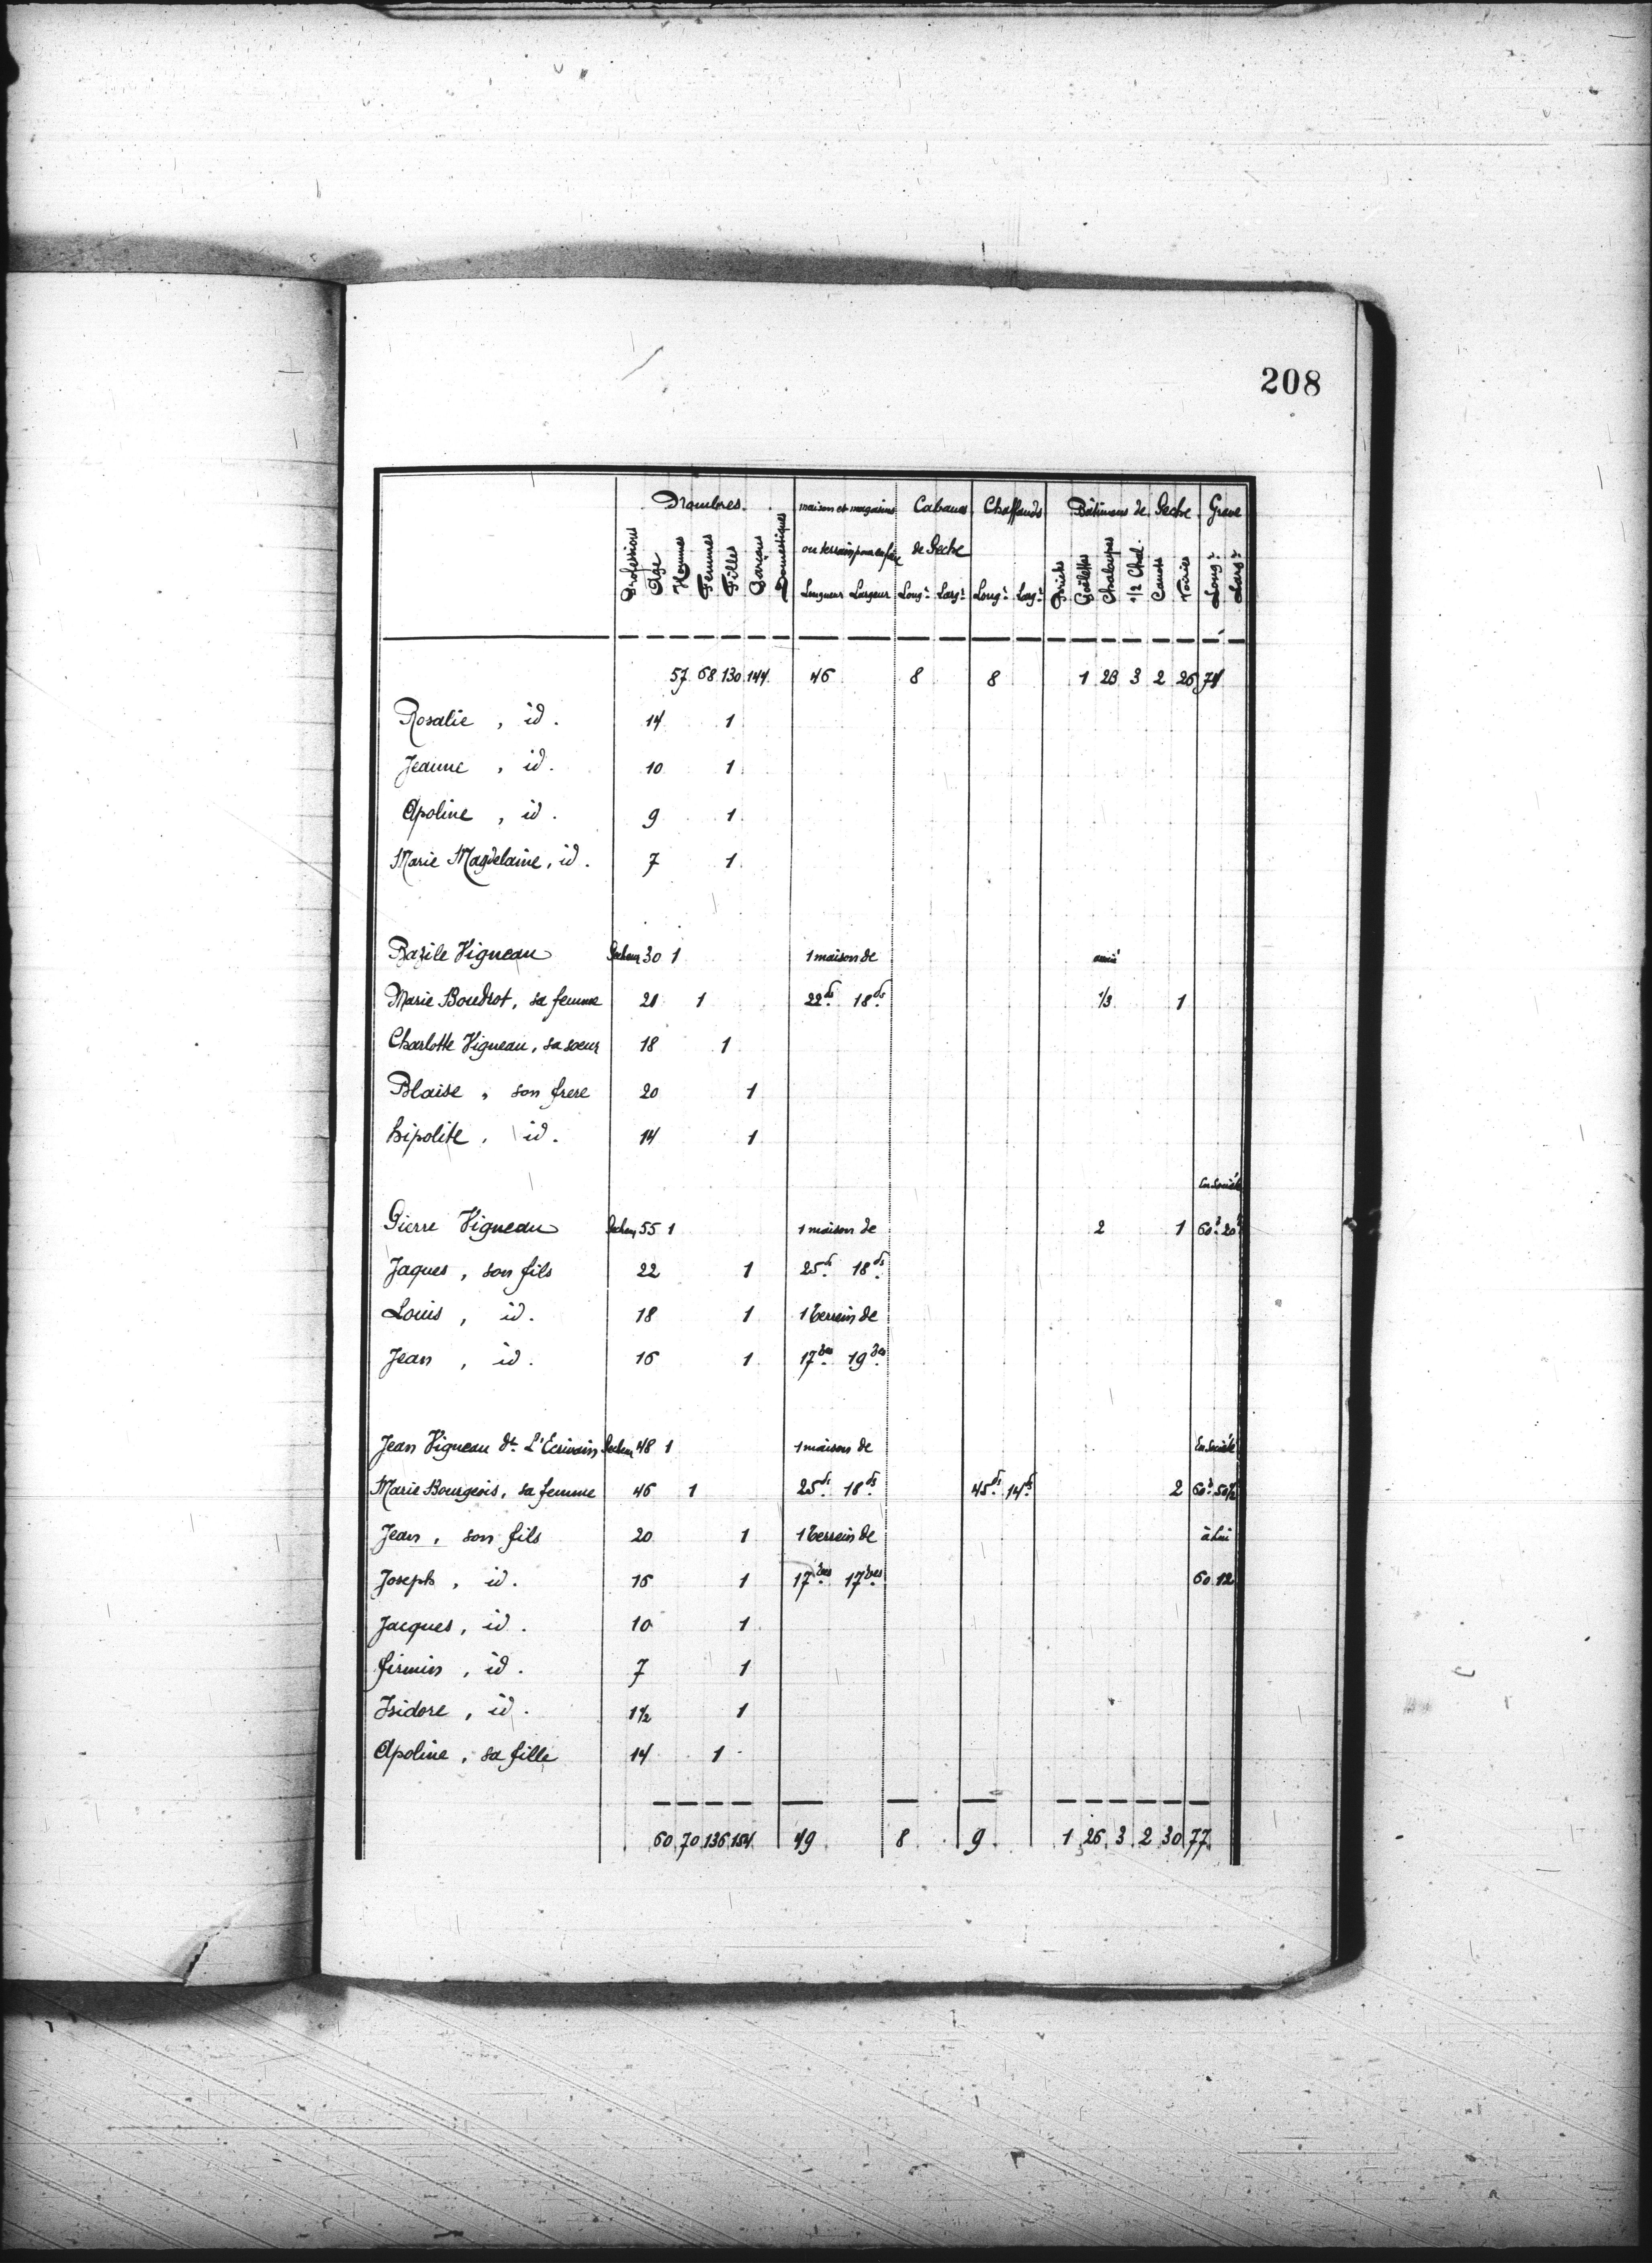 208
Nombres maison et magasins Cabanes Chaffauds Bâtimens de Peche Grave
ou terrain pour en faire de Peche
Professions Age Hommes Femmes Filles Garçons Domestiques Longueur Largeur Long.r Larg.r Long.r Larg.r Bricks Goëlettes Chaloupes 1/2 Chal. Canots Long.r Larg.r
57 68 130 144 46 8 8 1 23 3 2 26 74
Rosalie, id. 14 1
Jeanne, id. 10 1
Apoline, id. 9 1
Marie Magdelaine, id. 7 1
Bazile Vigneau Pecheur 30 1 1 maison de
Marie Boudrot, sa femme 21 1 22ds 18ds 1/3 1
Charlotte Vigneau, sa soeur 18 1
Blaise, son frere 20 1
hipolite, id. 14 1
En Société
Pierre Vigneau Pecheur 55 1 1 maison de 2 1 60 20
Jaques, son fils 22 1 25ds 18ds
Louis, id. 18 1 1 terrein de
Jean, id. 16 1 17 19
Jean Vigneau dt. L'Ecrivain Pecheur 48 1 1 maison de En Société
Marie Bourgeois, sa femme 46 1 25ds 18ds 45ds 14ds 2 60
Jean, son fils 20 1 1 terrein de à lui
Joseph, id. 16 1 17 17 60 12
Jacques, id. 10 1
firmin, id. 7 1
Isidore, id. 1 1/2 1
Apoline, sa fille 14 1
60 70 136 154 49 8 9 1 26 3 2 30 77